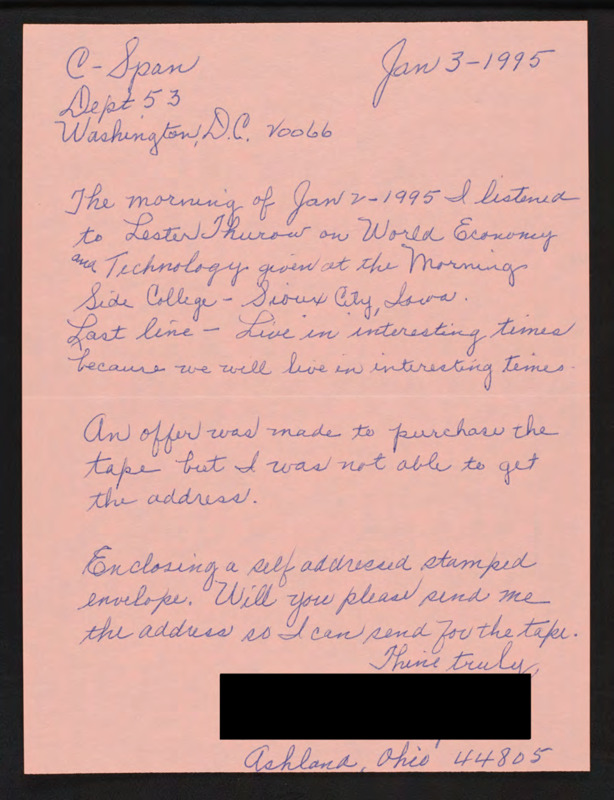 C-Span
Jan 3-1995
Dept 53
Washington, D.C. 20066
The morning of Jan 2-1995 I listened
to Lester Thurow on World Economy
and Technology given at the Morning
Side College - Sioux City, Iowa.
Last line - Live in interesting times
because we will live in interesting times.
An offer was made to purchase the
tape but I was not able to get
the address.
Enclosing a self addressed stamped
envelope. Will you please send me
the address so I can send for the tape.
Thine truly,
Ashland, Ohio 44805